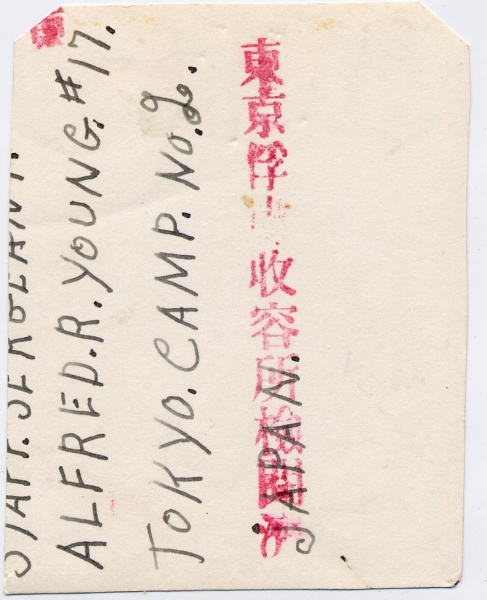 STAFF.SERGEANT.
ALFRED.R.YOUNG.#17.
TOKYO.CAMP.NO.2.
JAPAN.
東京俘虜收容所檢閲濟